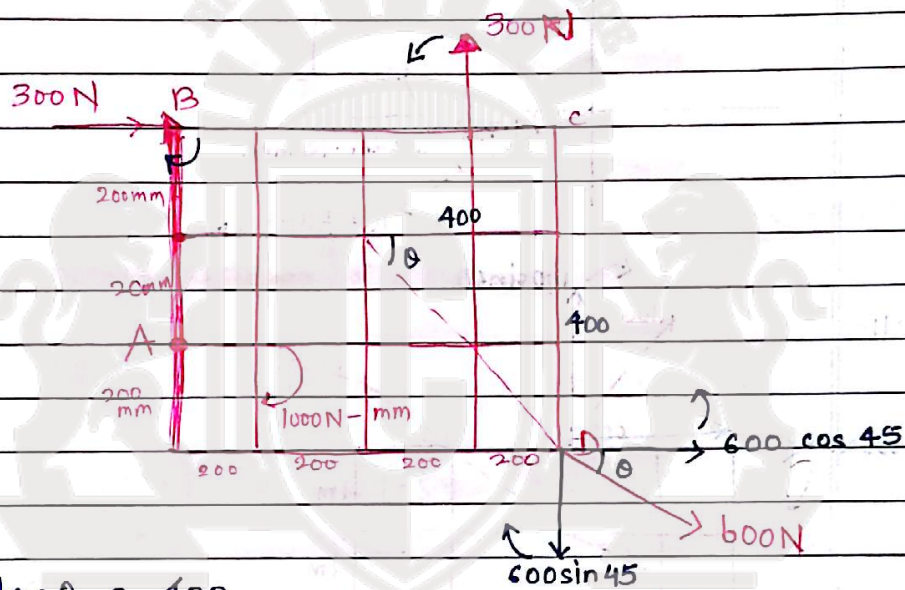 300 N
300 N
B
C
200mm
400
θ
200mm
400
A
200 mm
1000 N-mm
200
200
200
200
D
600 cos 45
θ
600N
600sin45